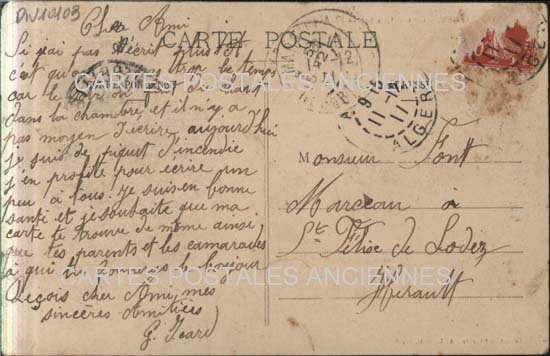 DIV10103
CARTE POSTALE
Cher Ami
Si j'ai pas écrit plus tôt
c'est qu' trop le temps
car le
dans la chambre, et il n'y a
pas moyen d'écrire aujourd'hui
je suis de piquet d'incendie
j'en profite pour écrire un
peu à tous. Je suis en bonne
santé et je souhaite que ma
carte te trouve de même ainsi
que tes parents et les camarades
à qui tu donneras le bonjour
Reçois cher Ami mes
sincères Amitiées
G. Icard
ALGER
Monsieur Fontt
Marceau à
St Félix de Lodez
Hérault
CARTES POSTALES ANCIENNES